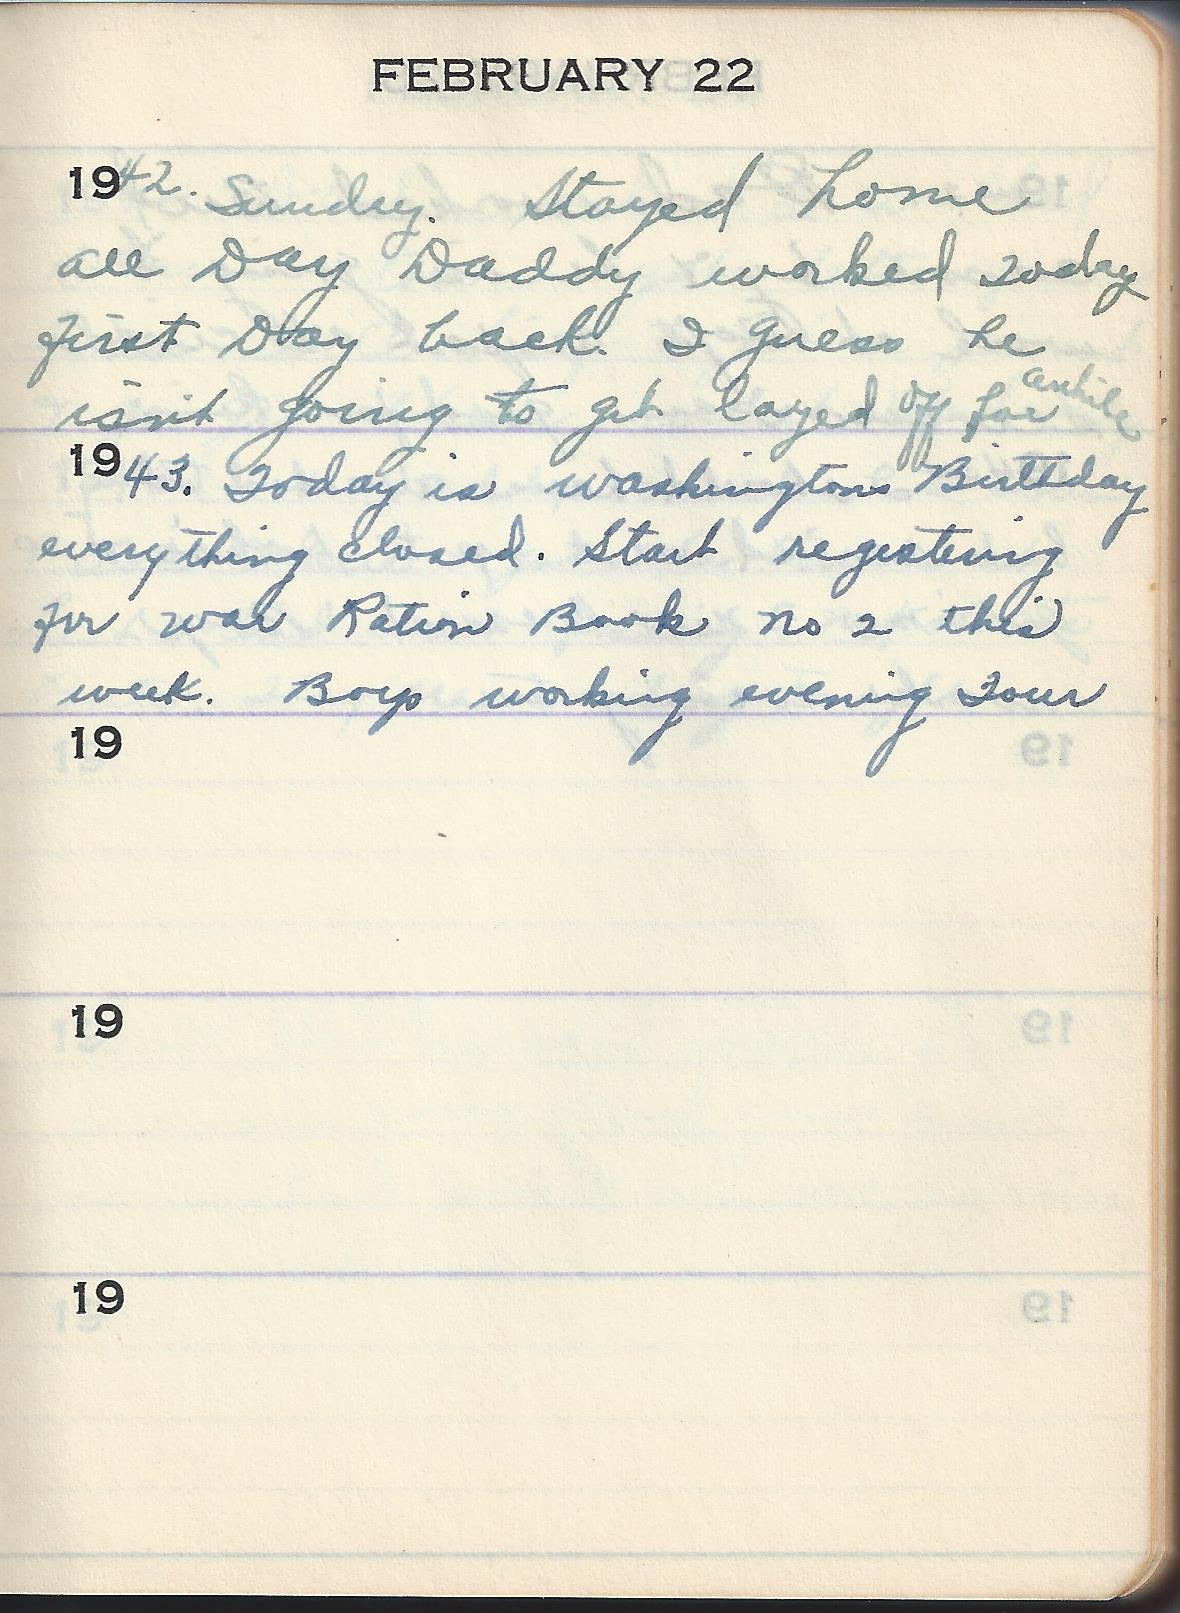 FEBRUARY 22
1942. Sunday. Stayed home
all Day Daddy worked Today
first Day back. I guess he
isn't going to get layed off for awhile
1943. Today is washingtons Birthday
everything closed. Start registering
for war Ration Book no 2 this
week. Boys working evening Tour
19
19
19